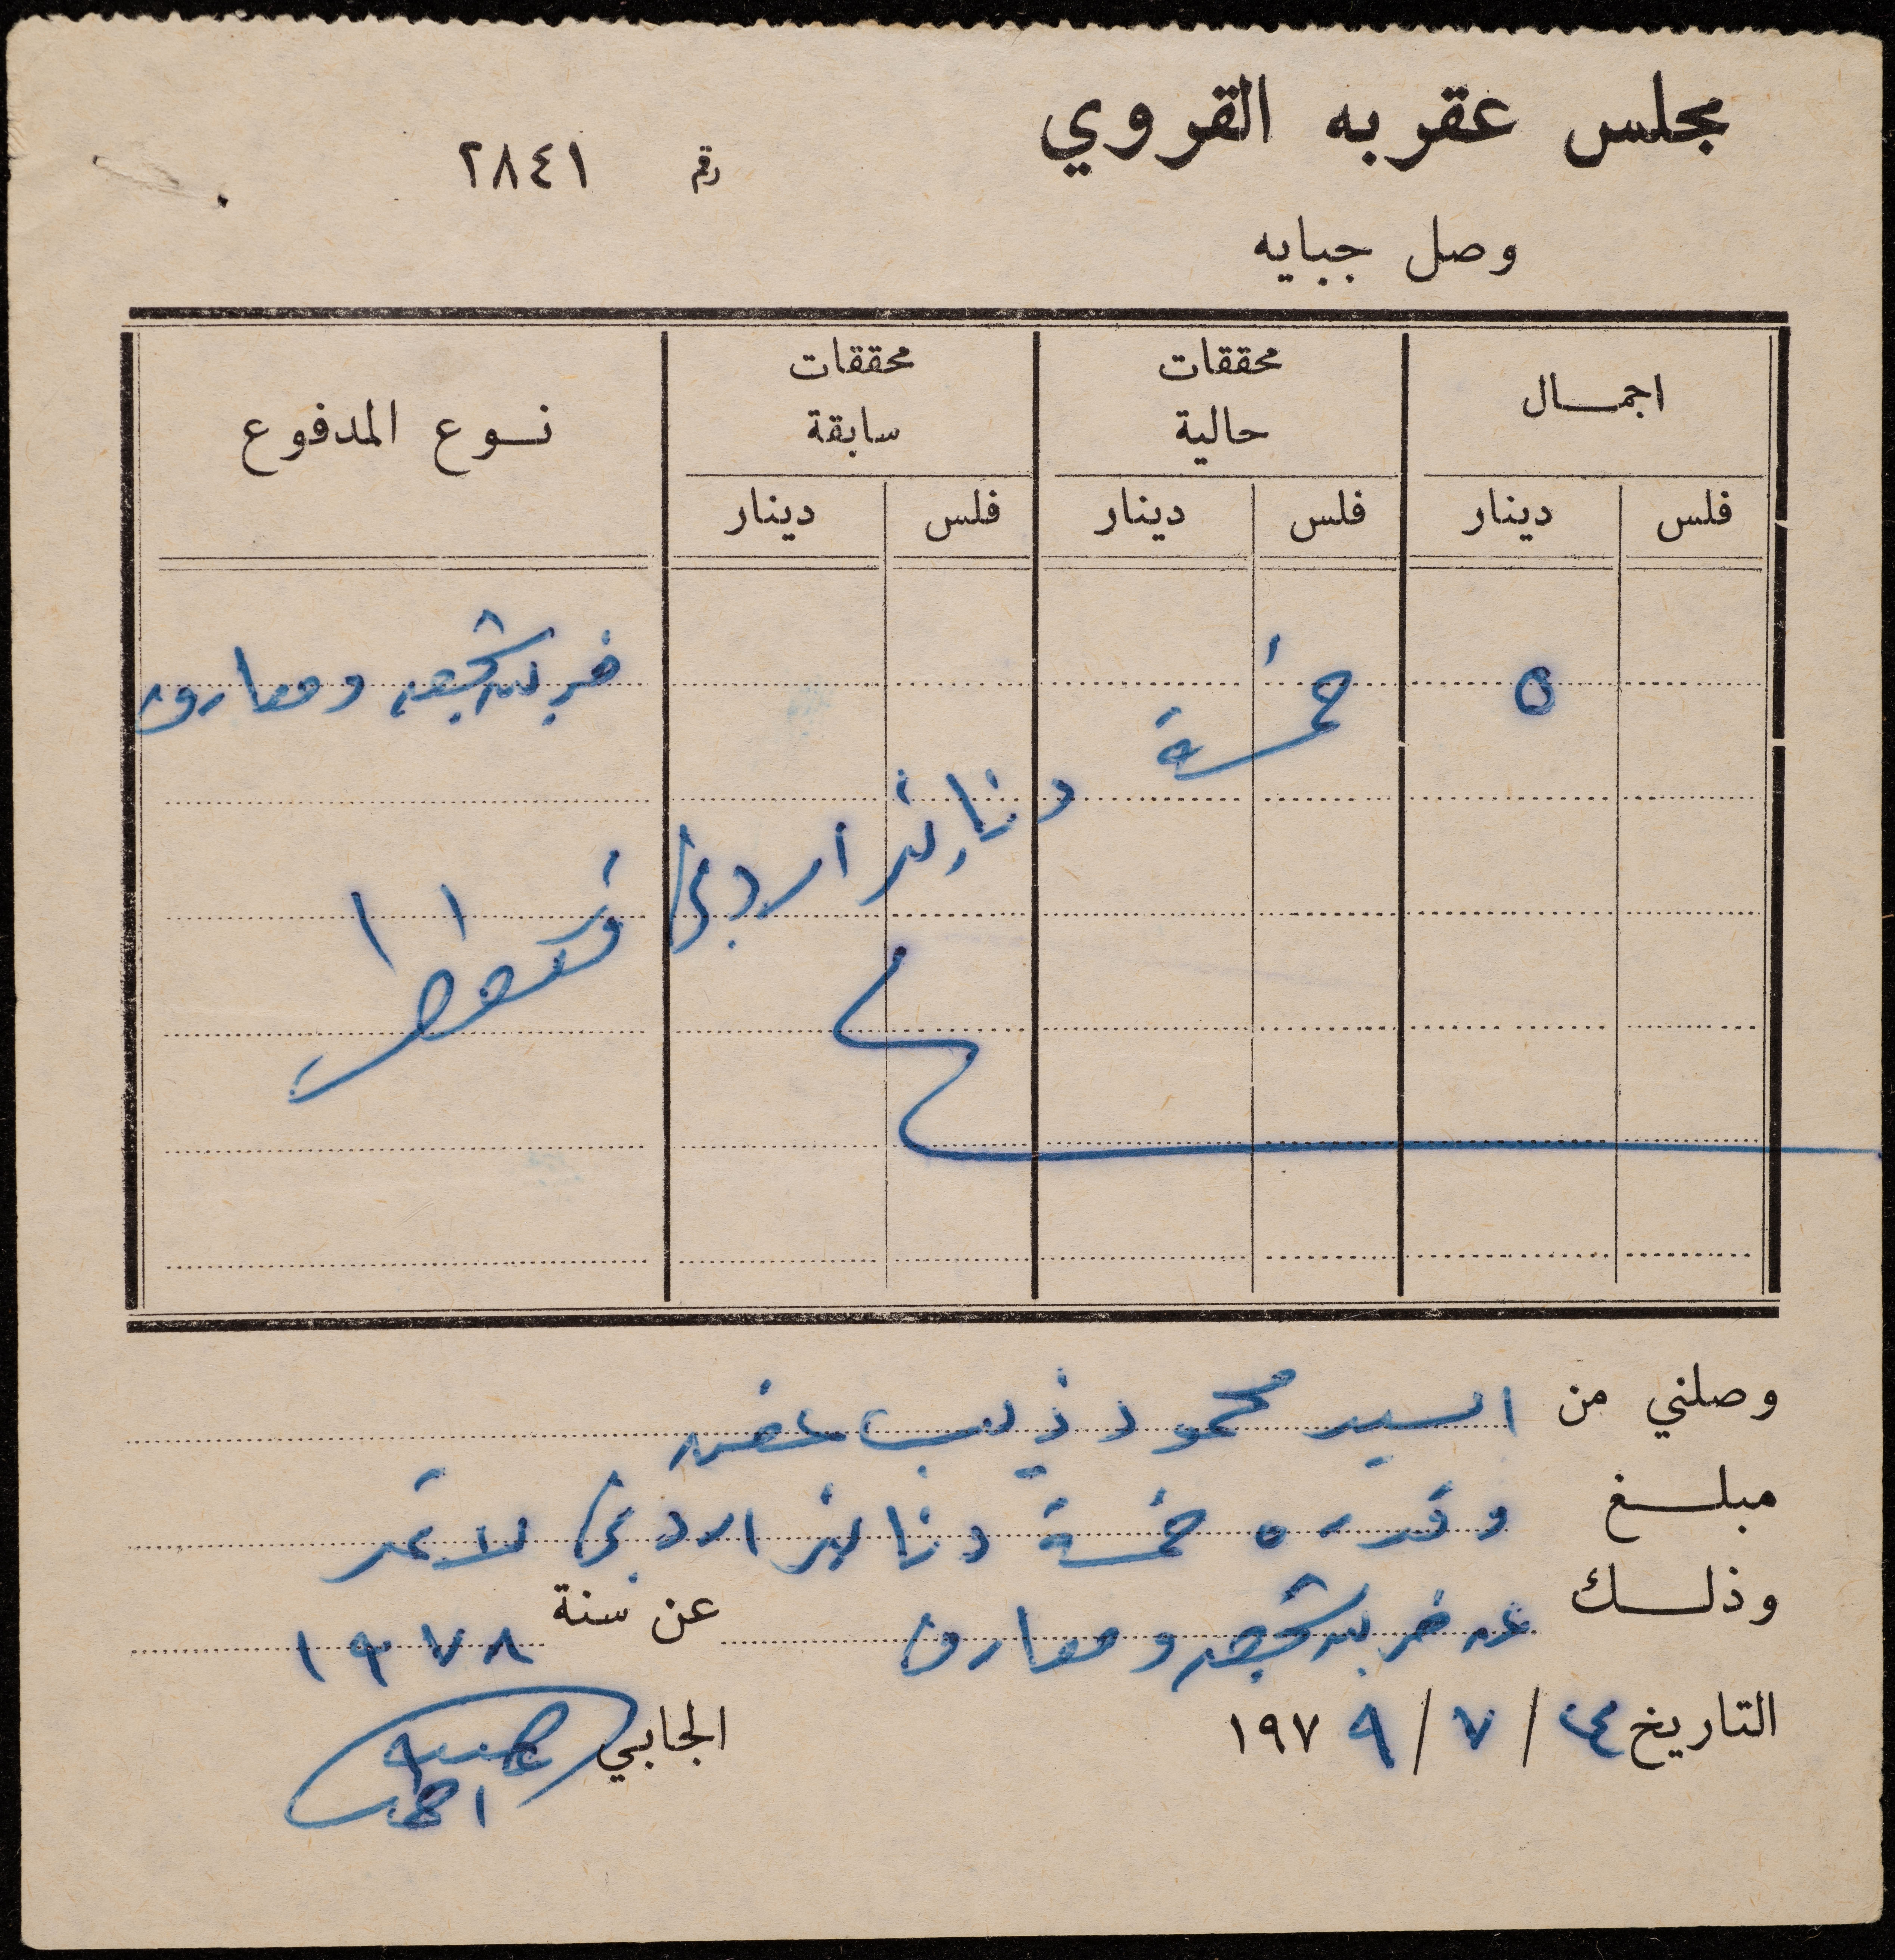 مجلس عقربه القروي
رقم ٢٨٤١
وصل جبايه
اجمال
محققات حالية
محققات سابقة
نوع المدفوع
فلس دينار فلس دينار فلس دينار
٥ خمسة دنانير اردني فقط
ضريبة شخصية ومعارف
وصلني من السيد محمود ذيب
مبلغ وقدره خمسة دنانير اردني لا غير
وذلك عن ضريبة شخصية ومعارف عن سنة ١٩٧٨
التاريخ ٤ / ٧ / ١٩٧٩ الجابي